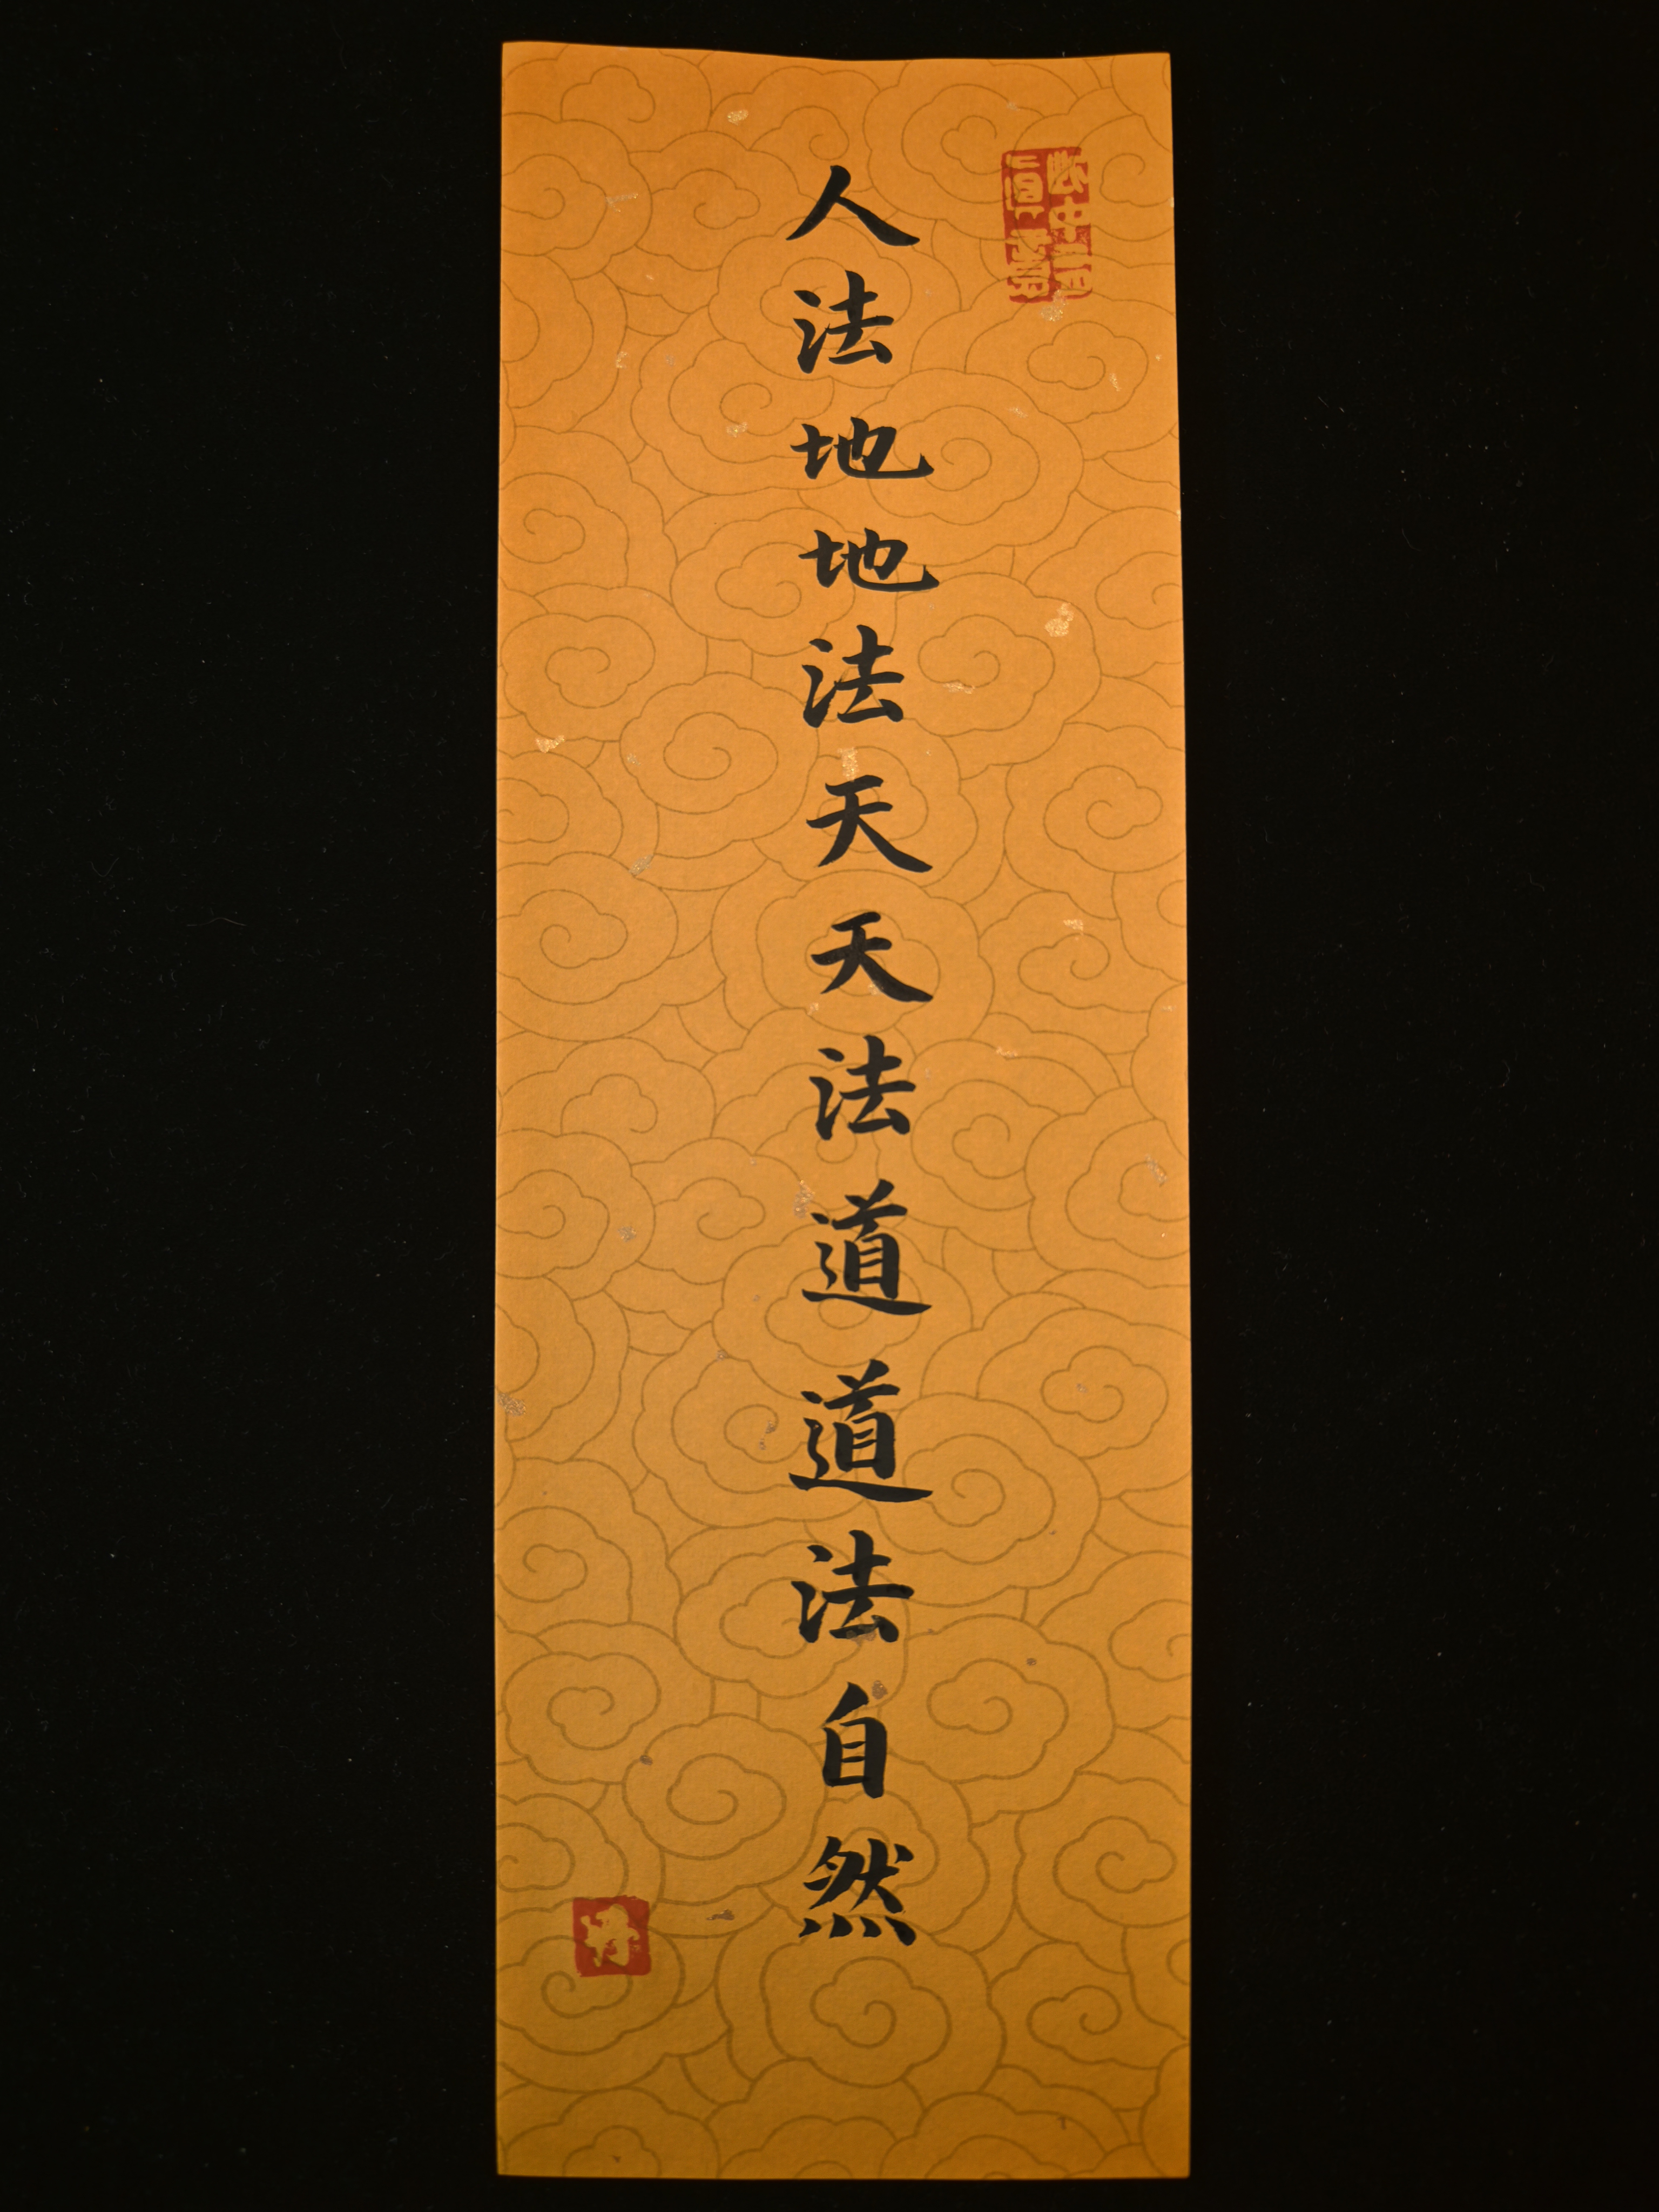 人法地地法天天法道道法自然